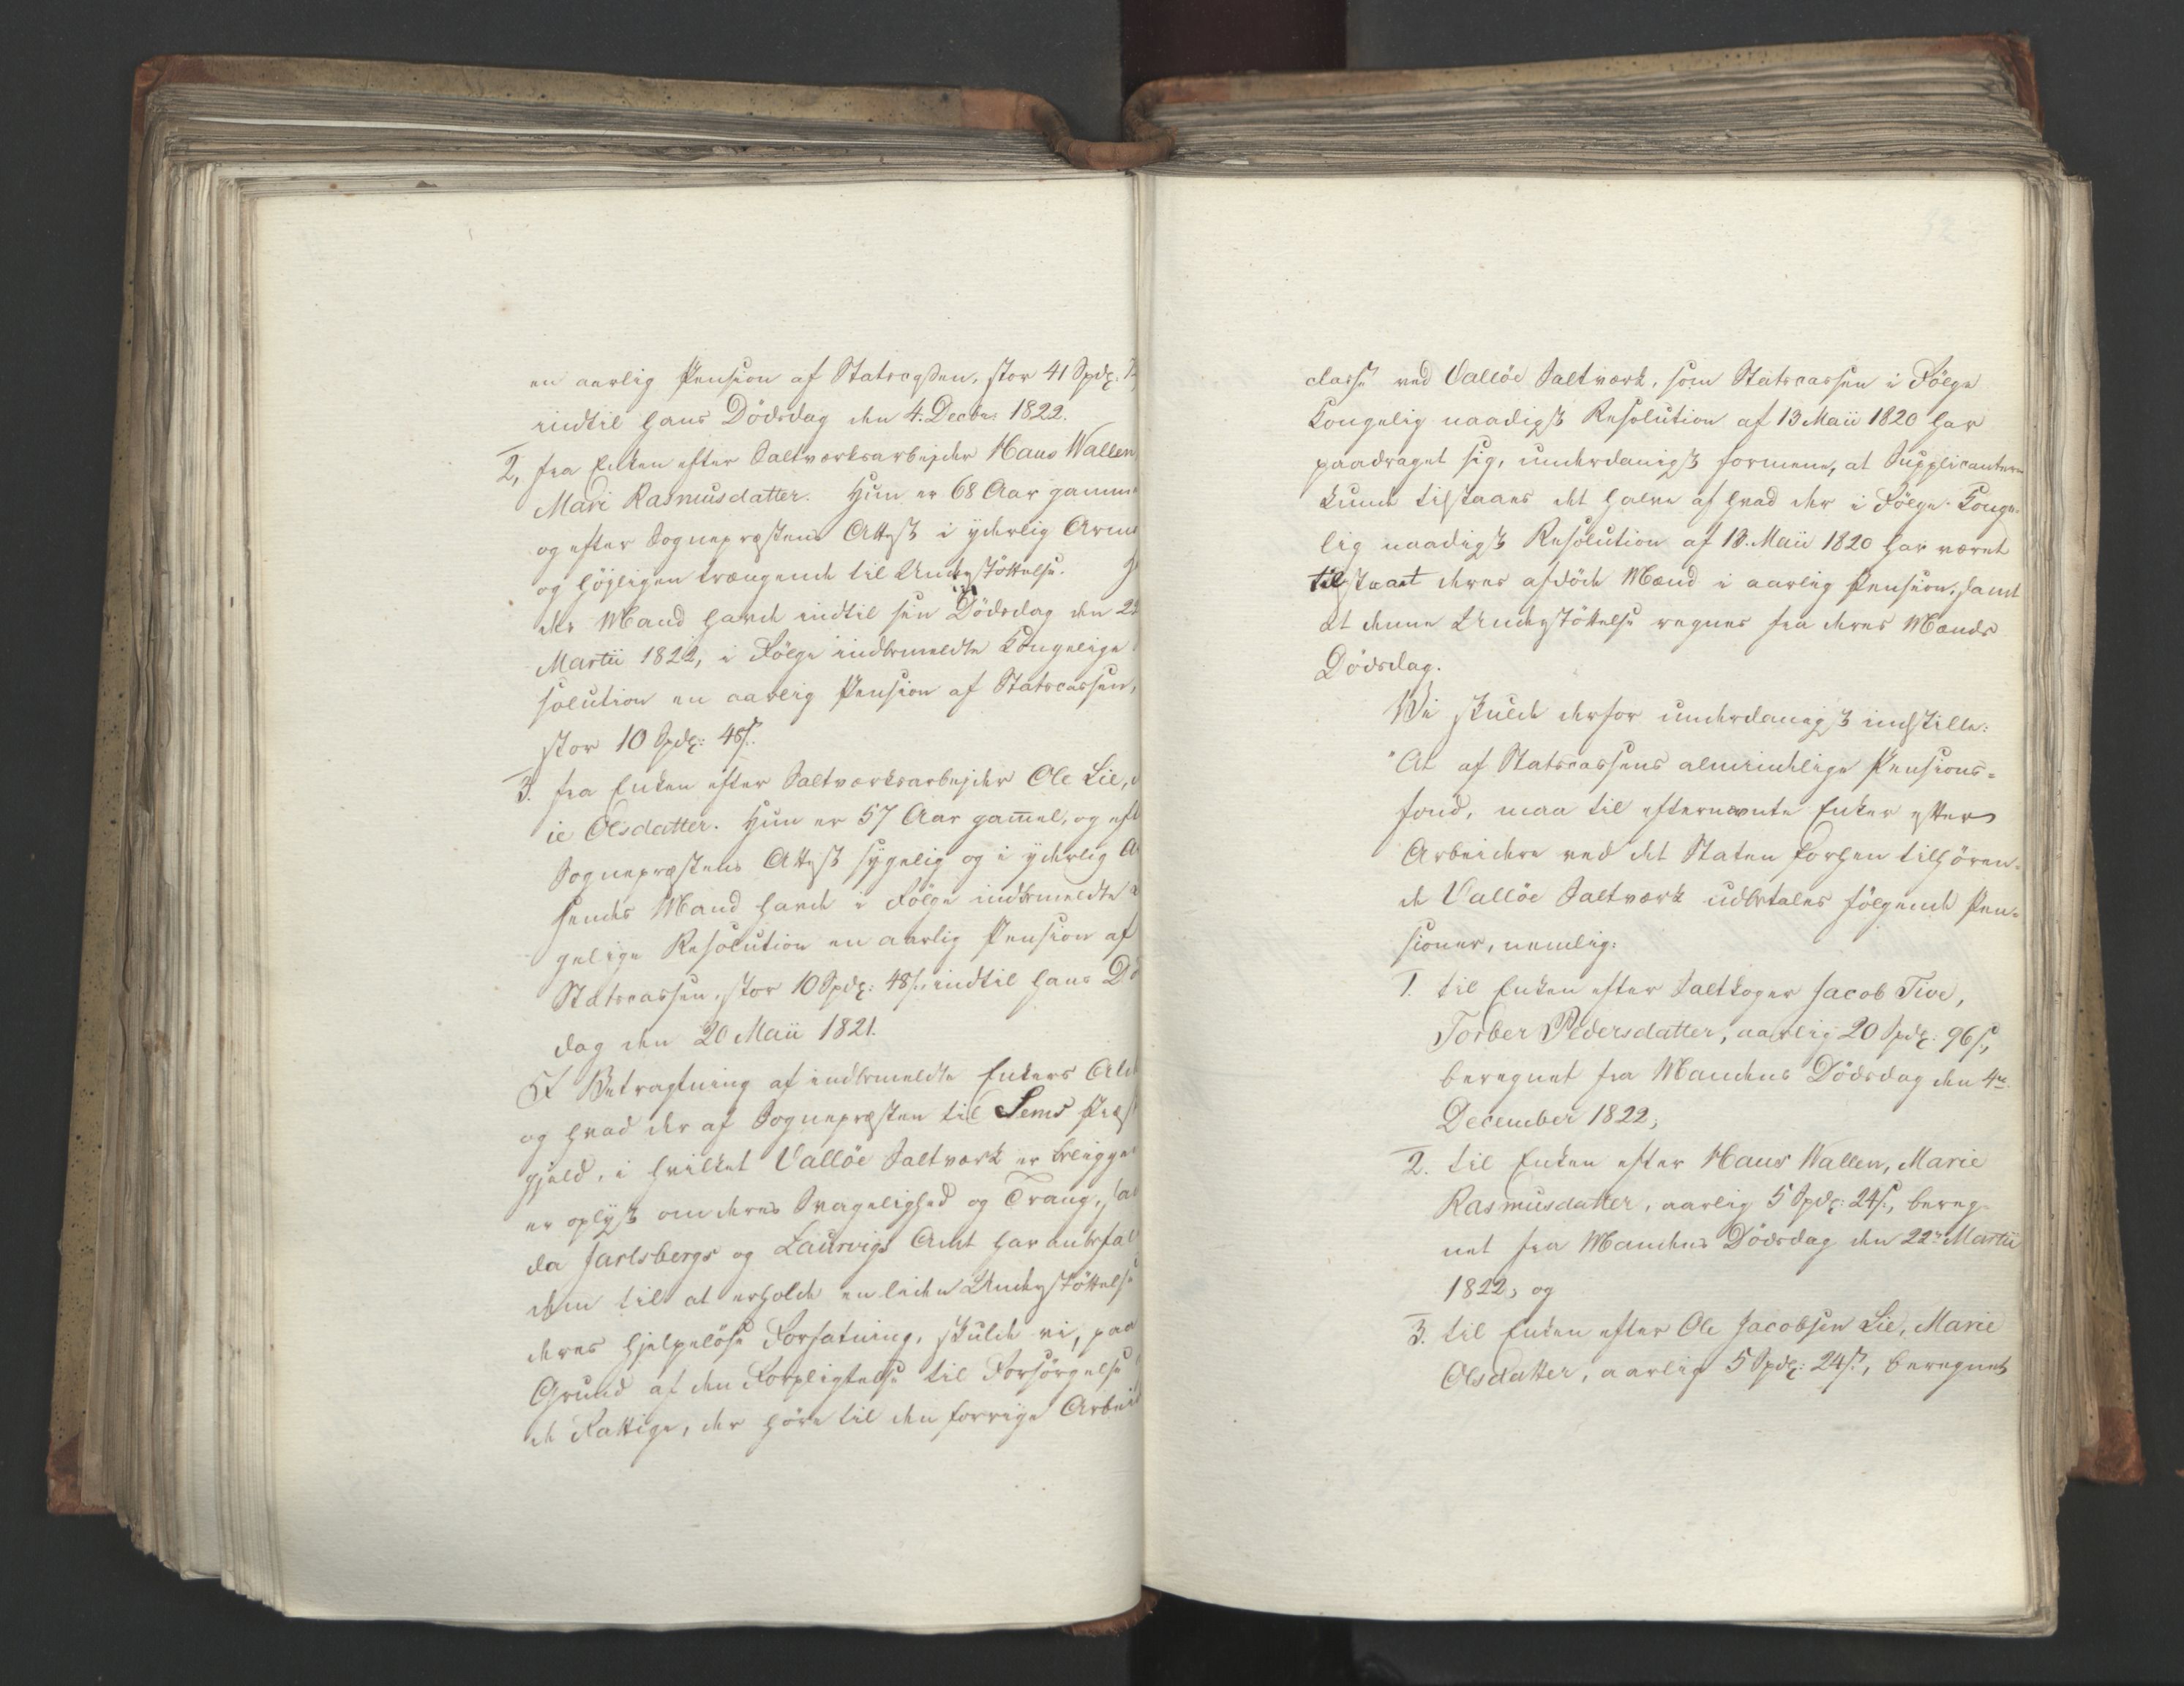 en aarlig Pension af Statscassen, stor 41 Spdlr: 7
indtil hans Dödsdag den 4. Decbr: 1822.
2, fra Enken efter Saltværksarbejder Hans Wallen
Mari Rasmusdatter. Hun er 68 Aar gamm
og efter Sognepræstens Attest i yderlig Arm
og höjligen trængende til Understöttelse.
des Mand havde indtil sin Dödsdag den 22
Martii 1822, i Fölge indbemeldte Kongelige
solution en aarlig Pension af Statscassen,
stor 10 Spdlr: 48 s.
3. fra Enken efter Saltværksarbejder Ole Lie,
ie Olsdatter. Hun er 57 Aar gam̅el, og eft
Sognepræstens Attest sygelig og i yderlig A
hendes Mand havde i Fölge indbemeldte
gelige Resolution en aarlig Pension af
Statscassen, stor 10 Spdlr: 48 s. indtil hans Dö
dag den 20 Maii 1821.
I Betragtning af indbemeldte Enkers Ald
og hvad der af Sognepræsten til Sems Præst
gjeld, i hvilket Vallöe Saltværk er beligge
er oplyst om deres Svagelighed og Trang, sa
da Jarlsbergs og Laurvigs Amt har anbefal
dem til at erholde en liden Understöttelse
deres hjelpelöse Forfatning, skulde vi, paa
Grund af den Forpligtelse til Forsörgelse
de Fattige, der höre til den forrige Arbeid
classe ved Vallöe Saltværk, som Statscassen i Fölge
Kongelig naadigst Resolution af 13 Maii 1820 har
paadraget sig, underdanigst formene, at Supplicanterne
kunde tilstaaes det halve af hvad der i Fölge Konge-
lig naadigst Resolution af 13. Maii 1820 har været
tilstaaet deres afdöde Mænd i aarlig Pension, samt
at denne Understöttelse regnes fra deres Mænds
Dödsdag.
Vi skulde derfor underdanigst indstille:
"At af Statscassens almindelige Pensions-
fond, maa til efternævnte Enker efter
Arbeidere ved det Staten forhen tilhören-
de Vallöe Saltværk udbetales fölgende Pen-
sioner, nemlig:
1. til Enken efter Saltkoger Jacob Tive,
Torber Pedersdatter, aarlig 20 Spdlr: 96 s.,
beregnet fra Mandens Dödsdag den 4de
December 1822,
2. til Enken efter Hans Wallen, Marie
Rasmusdatter, aarlig 5 Spdlr: 24 s., bereg-
net fra Mandens Dödsdag den 22de Martii
1822, og
3. til Enken efter Ole Jacobsen Lie, Marie
Olsdatter, aarlig 5 Spdlr: 24 s., beregnet